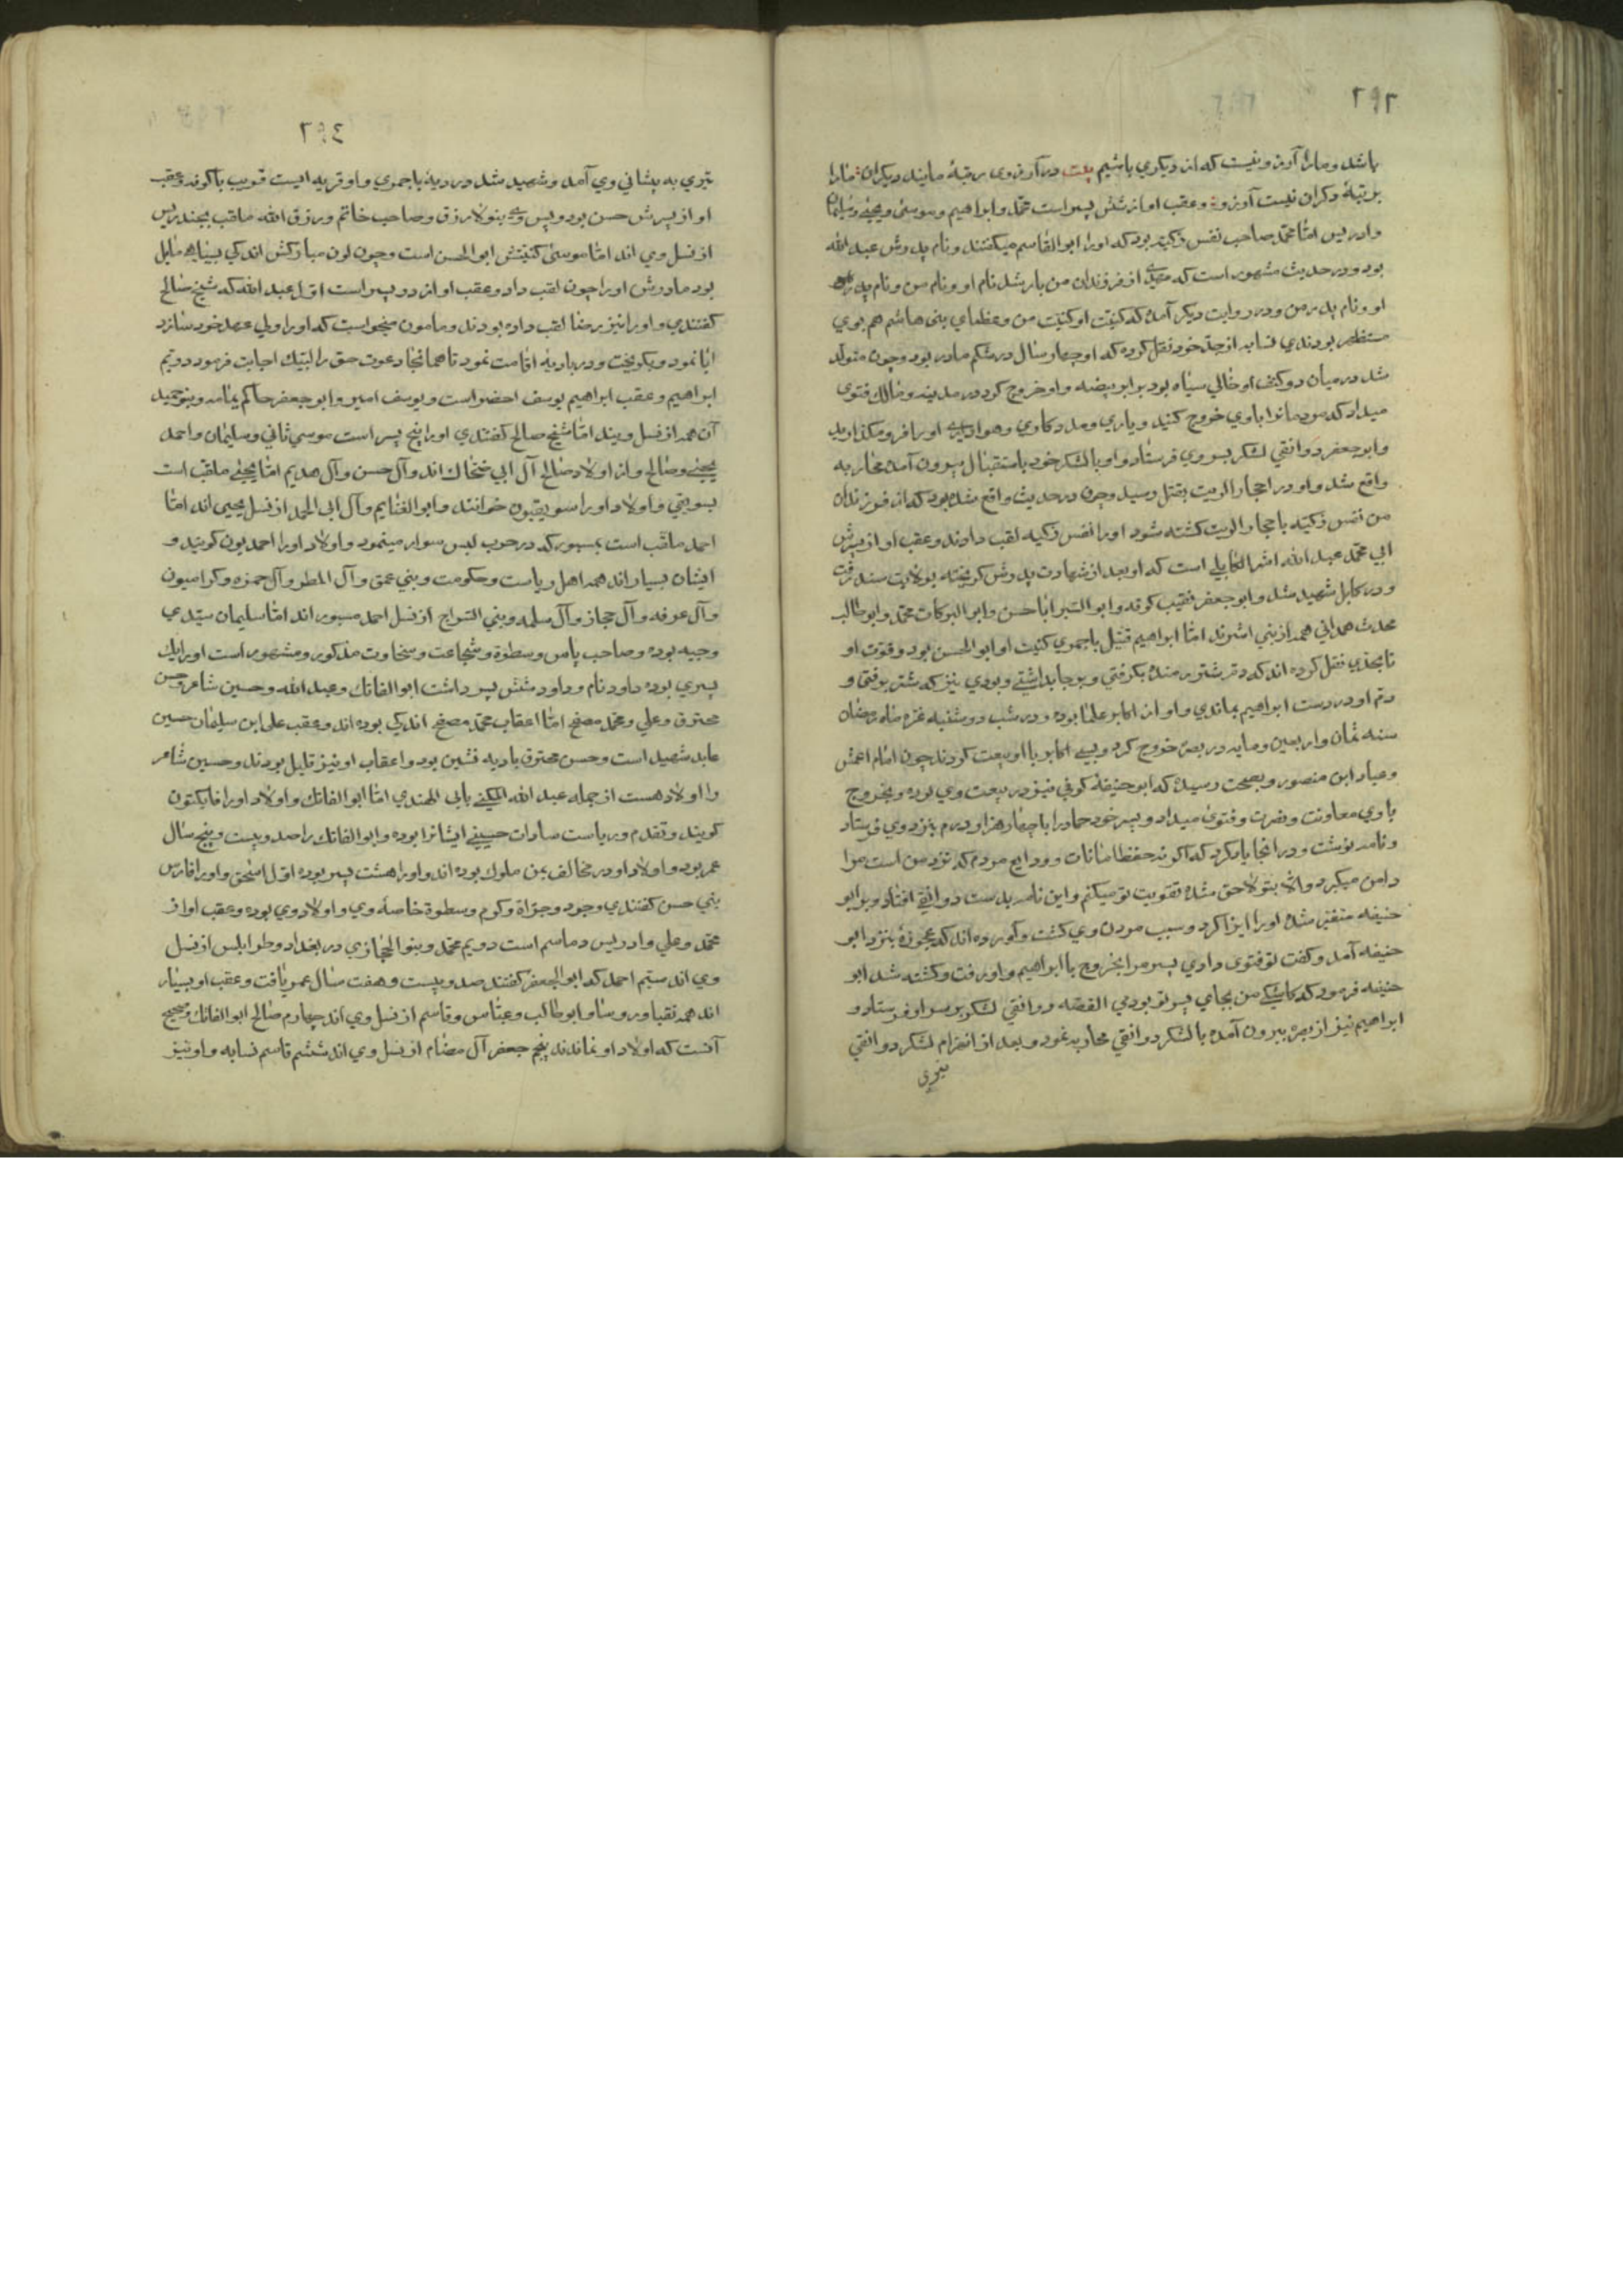 باشد و مارا آرزو نیست که از دیکری باشیم بیت در آرزوی رتبهٔ مایند دیکران مارا
برتبهٔ دکران نیست آرزو و عقب او از شش پسر است محمد و ابراهیم و موسی و یحیی و سلیمان
و ادریس امّا محمد صاحب نفس زکیّه بود که او را ابو القاسم میکفتند و نام پدرش عبد الله
بود و در حدیث مشهور است که مهدی از فرزندان من باشد نام او و نام من و نام پدر
او و نام پدر من و در روایت دیکر آمده که کنیّت او کنیّت من و عظمای بنی هاشم هم بوی
مستظهر بودندی نسابه از جدّ خود نقل کرده که او چهار سال در شکم مادر بود و چون متولّد
شد در میان دو کتف او خالی سیاه بود برابر بیضه و او خروج کرد در مدینه و مالک فتوی
میداد که مردمانرا با وی خروج کنید و یاری و مدد کاوی و هواداری او را فرو مکذارید
و ابو جعفر دوانقی لشکر بسوی وی فرستاد و او با لشکر خود باستقبال بیرون آمده محاربه
واقع شد و او در احجار الزیت بقتل رسید و چون در حدیث واقع شده بود که از فرزندان
من نفس زکیّه باحجار الزیت کشته شود او را نفس زکیه لقب دادند و عقب او از پسرش
ابی محمّد عبد الله اشتر الکابلی است که او بعد از شهادت پدرش کریخته بولایت سند رفت
و در کابل شهید شد و ابو جعفر نقیب کوفه و ابو السّرایا حسن و ابو البرکات محمّد و ابو طالب
محدث همدانی همه از بنی اشترند امّا ابراهیم قتیل باخمری کنیت او ابو الحسن بود و قوّت او
تا بحدّی نقل کرده اند که دم شتر رمنده بکرفتی و بر جا بداشتی و بودی نیز که شتر برفتی و
دم او در دست ابراهیم بماندی و او از اکابر علما بوده و در شب دوشنبه غرّه ماه رمضان
سنه ثمان و اربعین و مایه در بصره خروج کرد و بسی اکابر با او بیعت کردند چون امام اعمش
و عباد ابن منصور و بصحت رسیده که ابو حنیفهٔ کوفی نیز در بیعت وی بوده و بخروج
با وی معاونت و نصرت و فتوی میداد و پسر خود حماد را با چهار هزار درم بنزد وی فرستاد
و نامه نوشت و در انجا یاد کرد که اکر نه حفظ امانات و ودایع مردم که نزد من است مرا
دامن میکیرد و الا بتو لاحق شده تقویت تو میکنم و این نامه بدست دوانقی افتاد و بر ابو
حنیفه متغیّر شده او را ایذا کرد و سبب مردن وی کشت و آورده اند که عجوزهٔ بنزد ابو
حنیفه آمد و کفت تو فتوی دادی پسر مرا بخروج با ابراهیم و او رفت و کشته شد ابو
حنیفه فرمود که کاشکی من بجای پسر تو بودمی القصّه دوانقی لشکر بر سر او فرستاد و
ابراهیم نیز از بصره بیرون آمده با لشکر دوانقی محاربه نمود و بعد از انهزام لشکر دوانقی
تیری
٢٩٤
تیری به پیشانی وی آمد و شهید شد در دیهٔ باخمری و او قریه ایست قریب باکوفه و عقب
او از پسرش حسن بود و بس و بنو لازرق و صاحب خاتم و رزق الله ملقب بجندریس
از نسل وی اند امّا موسی کنیتش ابو الحسن است و چون لون مبارکش اندکی بسیاهی مایل
بود مادرش او را جون لقب داد و عقب او از دو پسر است اوّل عبد الله که شیخ صالح
کفتندی و او را نیز رضا لقب داده بودند و مامون میخواست که او را ولی عهد خود سازد
ابا نمود و بکریخت و در بادیه اقامت نمود تا همانجا دعوت حق را لبّیک اجابت فرمود دویّم
ابراهیم و عقب ابراهیم یوسف اخضر است و یوسف امیر و ابو جعفر حاکم یمامه و بنو حمید
آن همه از نسل ویند امّا شیخ صالح کفتندی او را پنج پسر است موسی ثانی و سلیمان و احمد
یحیی و صالح و از اولاد صالح آل ابی ضحاک اند و آل حسن و آل هدیم امّا یحیی ملقب است
بسویقی و اولاد او را سویقیون خوانند و ابو الغنایم و آل ابی الحمد از نسل یحیی اند امّا
احمد ملقّب است بمسور که در حرب لبس سوار مینمود و اولاد او را احمدیون کویند و
ایشان بسیار اند همه اهل ریاست و حکومت و بنی عمق و آل المطر و آل حمزه و کرامیون
و آل عرفه و آل حجاز و آل مسلمه و بنی السراج از نسل احمد مسور اند امّا سلیمان سیّدی
وجیه بوده و صاحب باس و سطوة و شجاعت و سخاوت مذکور و مشهور است او را یک
پسری بوده داود نام و داود شش پسر داشت ابو الفاتک و عبد الله و حسین شاعر و حسن
محترق و علی و محمّد مصفح امّا اعقاب محمّد مصفح اندکی بوده اند و عقب علی ابن سلیمان حسین
عابد شهید است و حسن محترق بادیه نشین بود و اعقاب او نیز قلیل بودند و حسین شاعر
را اولاد هست از جمله عبد الله المکنی بابی الهندی امّا ابو الفاتک و اولاد او را فاتکیون
کویند و تقدم و ریاست سادات حسینی ایشانرا بوده و ابو الفاتک را صد و بیست و پنج سال
عمر بود و اولاد او در مخالف یمن ملوک بوده اند و او را هشت پسر بوده اوّل اسحق و او را فارس
بنی حسن کفتندی و جود و جراة و کرم و سطوة خاصهٔ وی و اولاد وی بوده و عقب او از
محمّد و علی و ادریس و ماسم است دویم محمّد و بنو الحجازی در بغداد و طرابلس از نسل
وی اند سیّم احمد که ابو الجعفر کفتند صد و بیست و هفت سال عمر یافت و عقب او بسیار
اند همه نقبا و روسا و ابو طالب و عبّاس و قاسم از نسل وی اند چهارم صالح ابو الفاتک و صحیح
آنست که اولاد او نماندند پنجم جعفر آل مضام از نسل وی اند ششم قاسم نسابه و او نیز